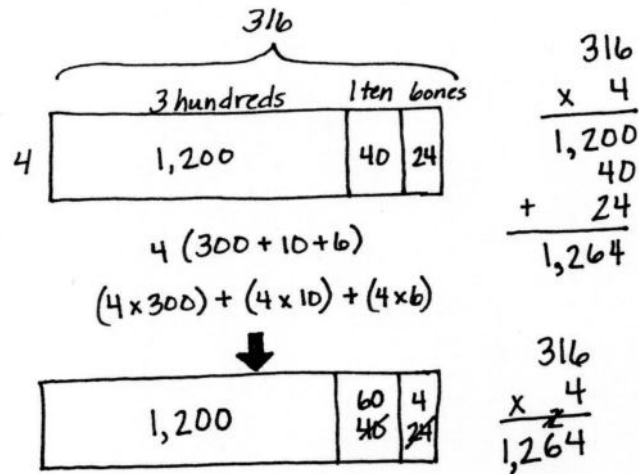 316
3 hundreds 1 ten 6ones
4 1,200 40 24
4 (300 + 10 + 6)
(4 x 300) + (4 x 10) + (4 x 6)
1,200 60 4
40 24
316
x 4
1,200
40
+ 24
1,264
316
x 4
2
1,264